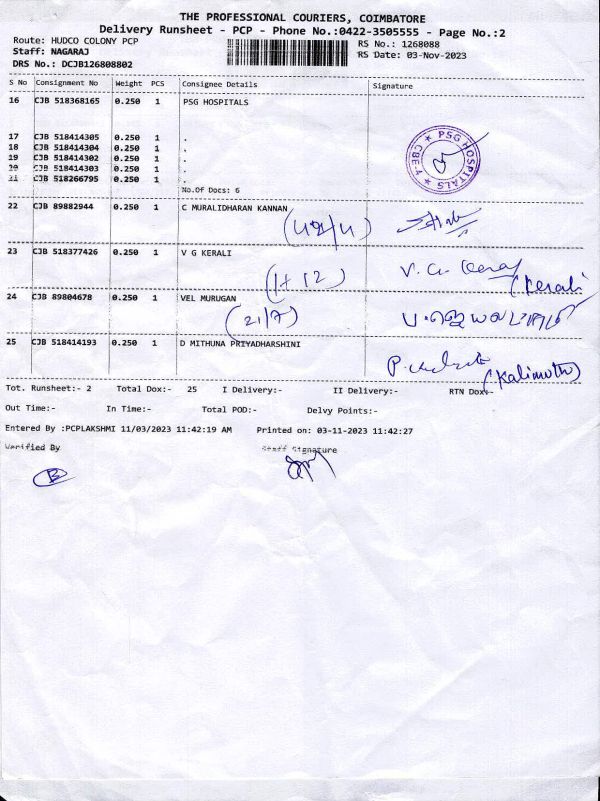 THE PROFESSIONAL COURIERS, COIMBATORE
Delivery Runsheet - PCP - Phone No.:0422-3505555 - Page No.:2
Route: HUDCO COLONY PCP
Staff: NAGARAJ
DRS No.: DCJB126808802
RS No.: 1268088
RS Date: 03-Nov-2023
S No Consignment No Weight PCS Consignee Details Signature
16 CJB 518368165 0.250 1 PSG HOSPITALS
17 CJB 518414305 0.250 1 .
18 CJB 518414304 0.250 1 .
19 CJB 518414302 0.250 1 .
20 CJB 518414303 0.250 1 .
21 CJB 518266795 0.250 1 .
PSG HOSPITALS
CBE-4
No.Of Docs: 6
22 CJB 89882944 0.250 1 C MURALIDHARAN KANNAN
23 CJB 518377426 0.250 1 V G KERALI
V. G. Kerali
(Kerali
24 CJB 89804678 0.250 1 VEL MURUGAN
(21/7)
25 CJB 518414193 0.250 1 D MITHUNA PRIYADHARSHINI
(Kalimuthu)
Tot. Runsheet:- 2 Total Dox:- 25 I Delivery:- II Delivery:- RTN Dox:-
Out Time:- In Time:- Total POD:- Delvy Points:-
Entered By :PCPLAKSHMI 11/03/2023 11:42:19 AM Printed on: 03-11-2023 11:42:27
Verified By Staff Signature